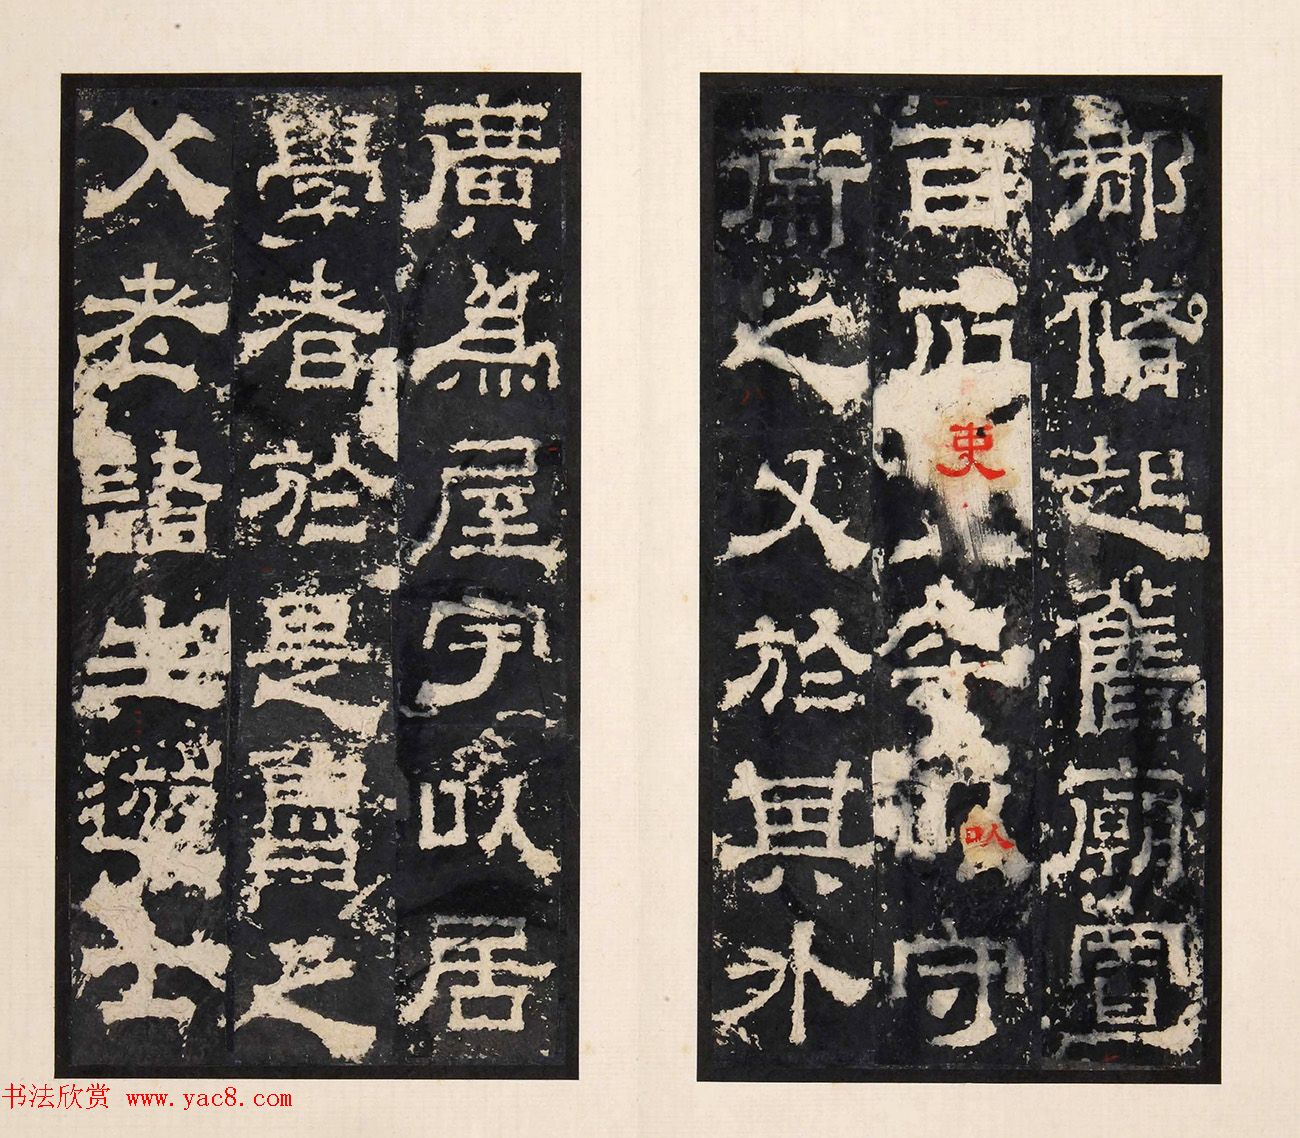 郡脩起舊廟置
百石吏卒以守
衛之又於其外
廣為屋宇以居
學者於是魯之
父老諸生遊士
书法欣赏 www.yac8.com